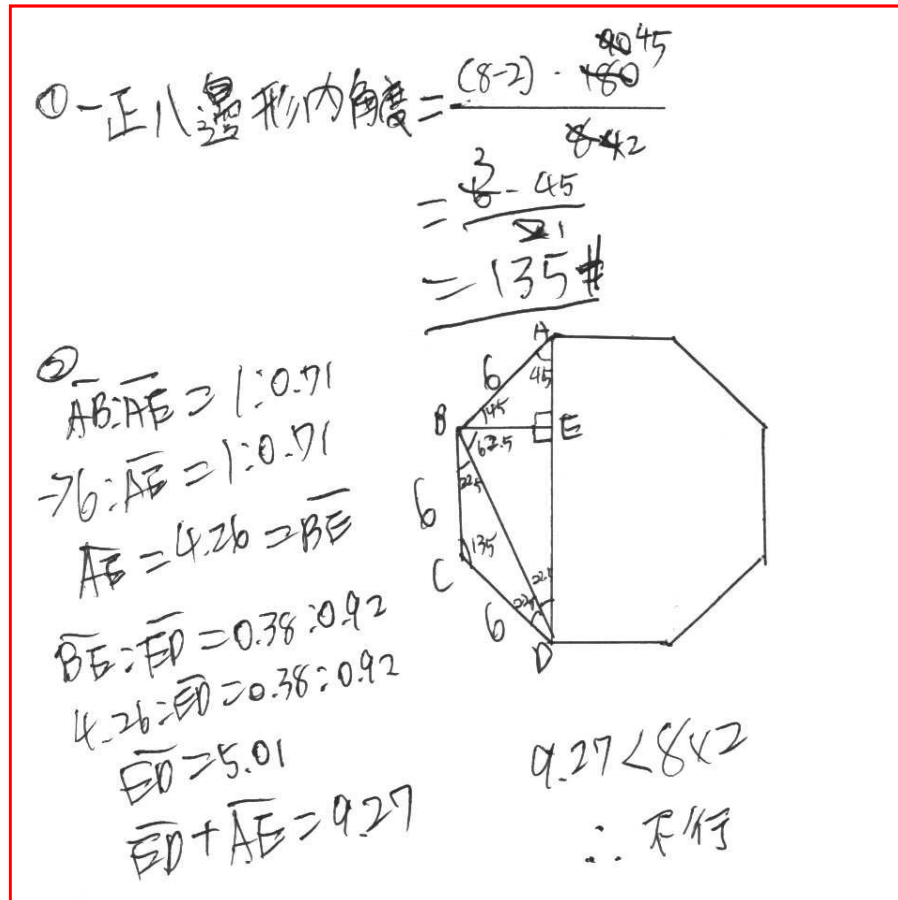 ①一正八邊形內角度=(8-2)·180 90 45/8 4 2
=6 3-45/2 1
=135#
②
AB:AE=1:0.71
→6:AE=1:0.71
AE=4.26=BE
BE:ED=0.38:0.92
4.26:ED=0.38:0.92
ED=5.01
ED+AE=9.27
A
6
45
45
B
E
67.5
22.5
6
135
C
22.5
22.5
6
D
9.27<8×2
∴不行